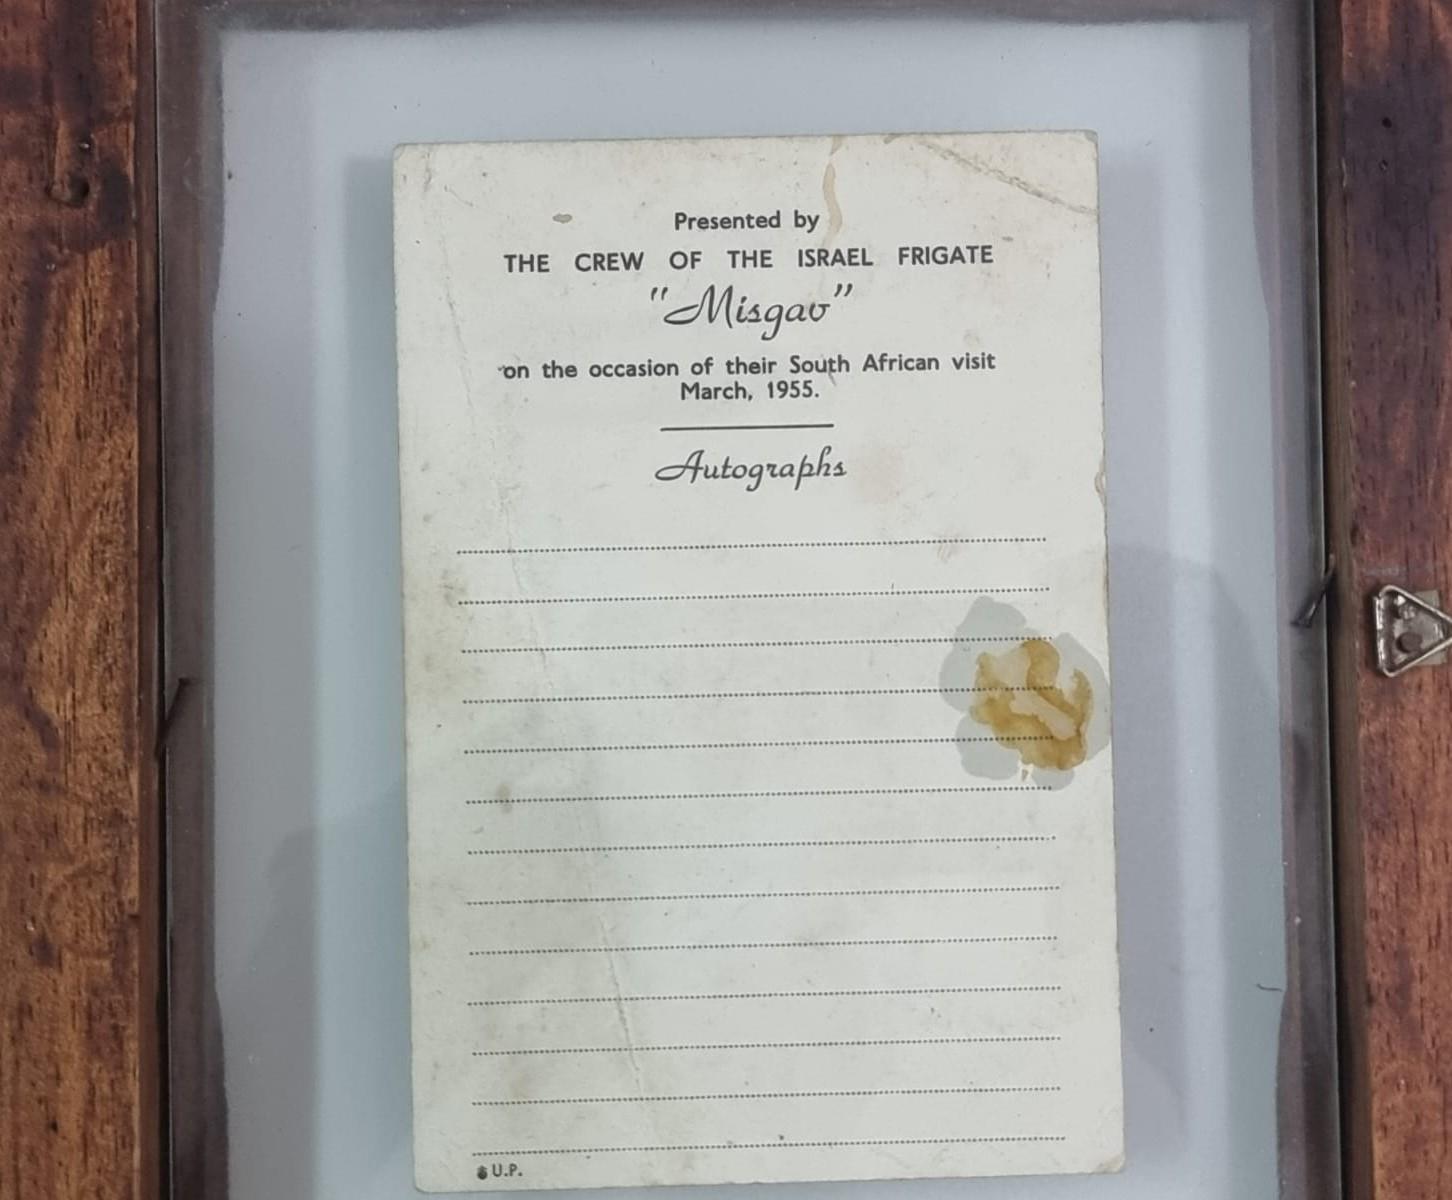 Presented by
THE CREW OF THE ISRAEL FRIGATE
"Misgav"
on the occasion of their South African visit
March, 1955.
Autographs
U.P.